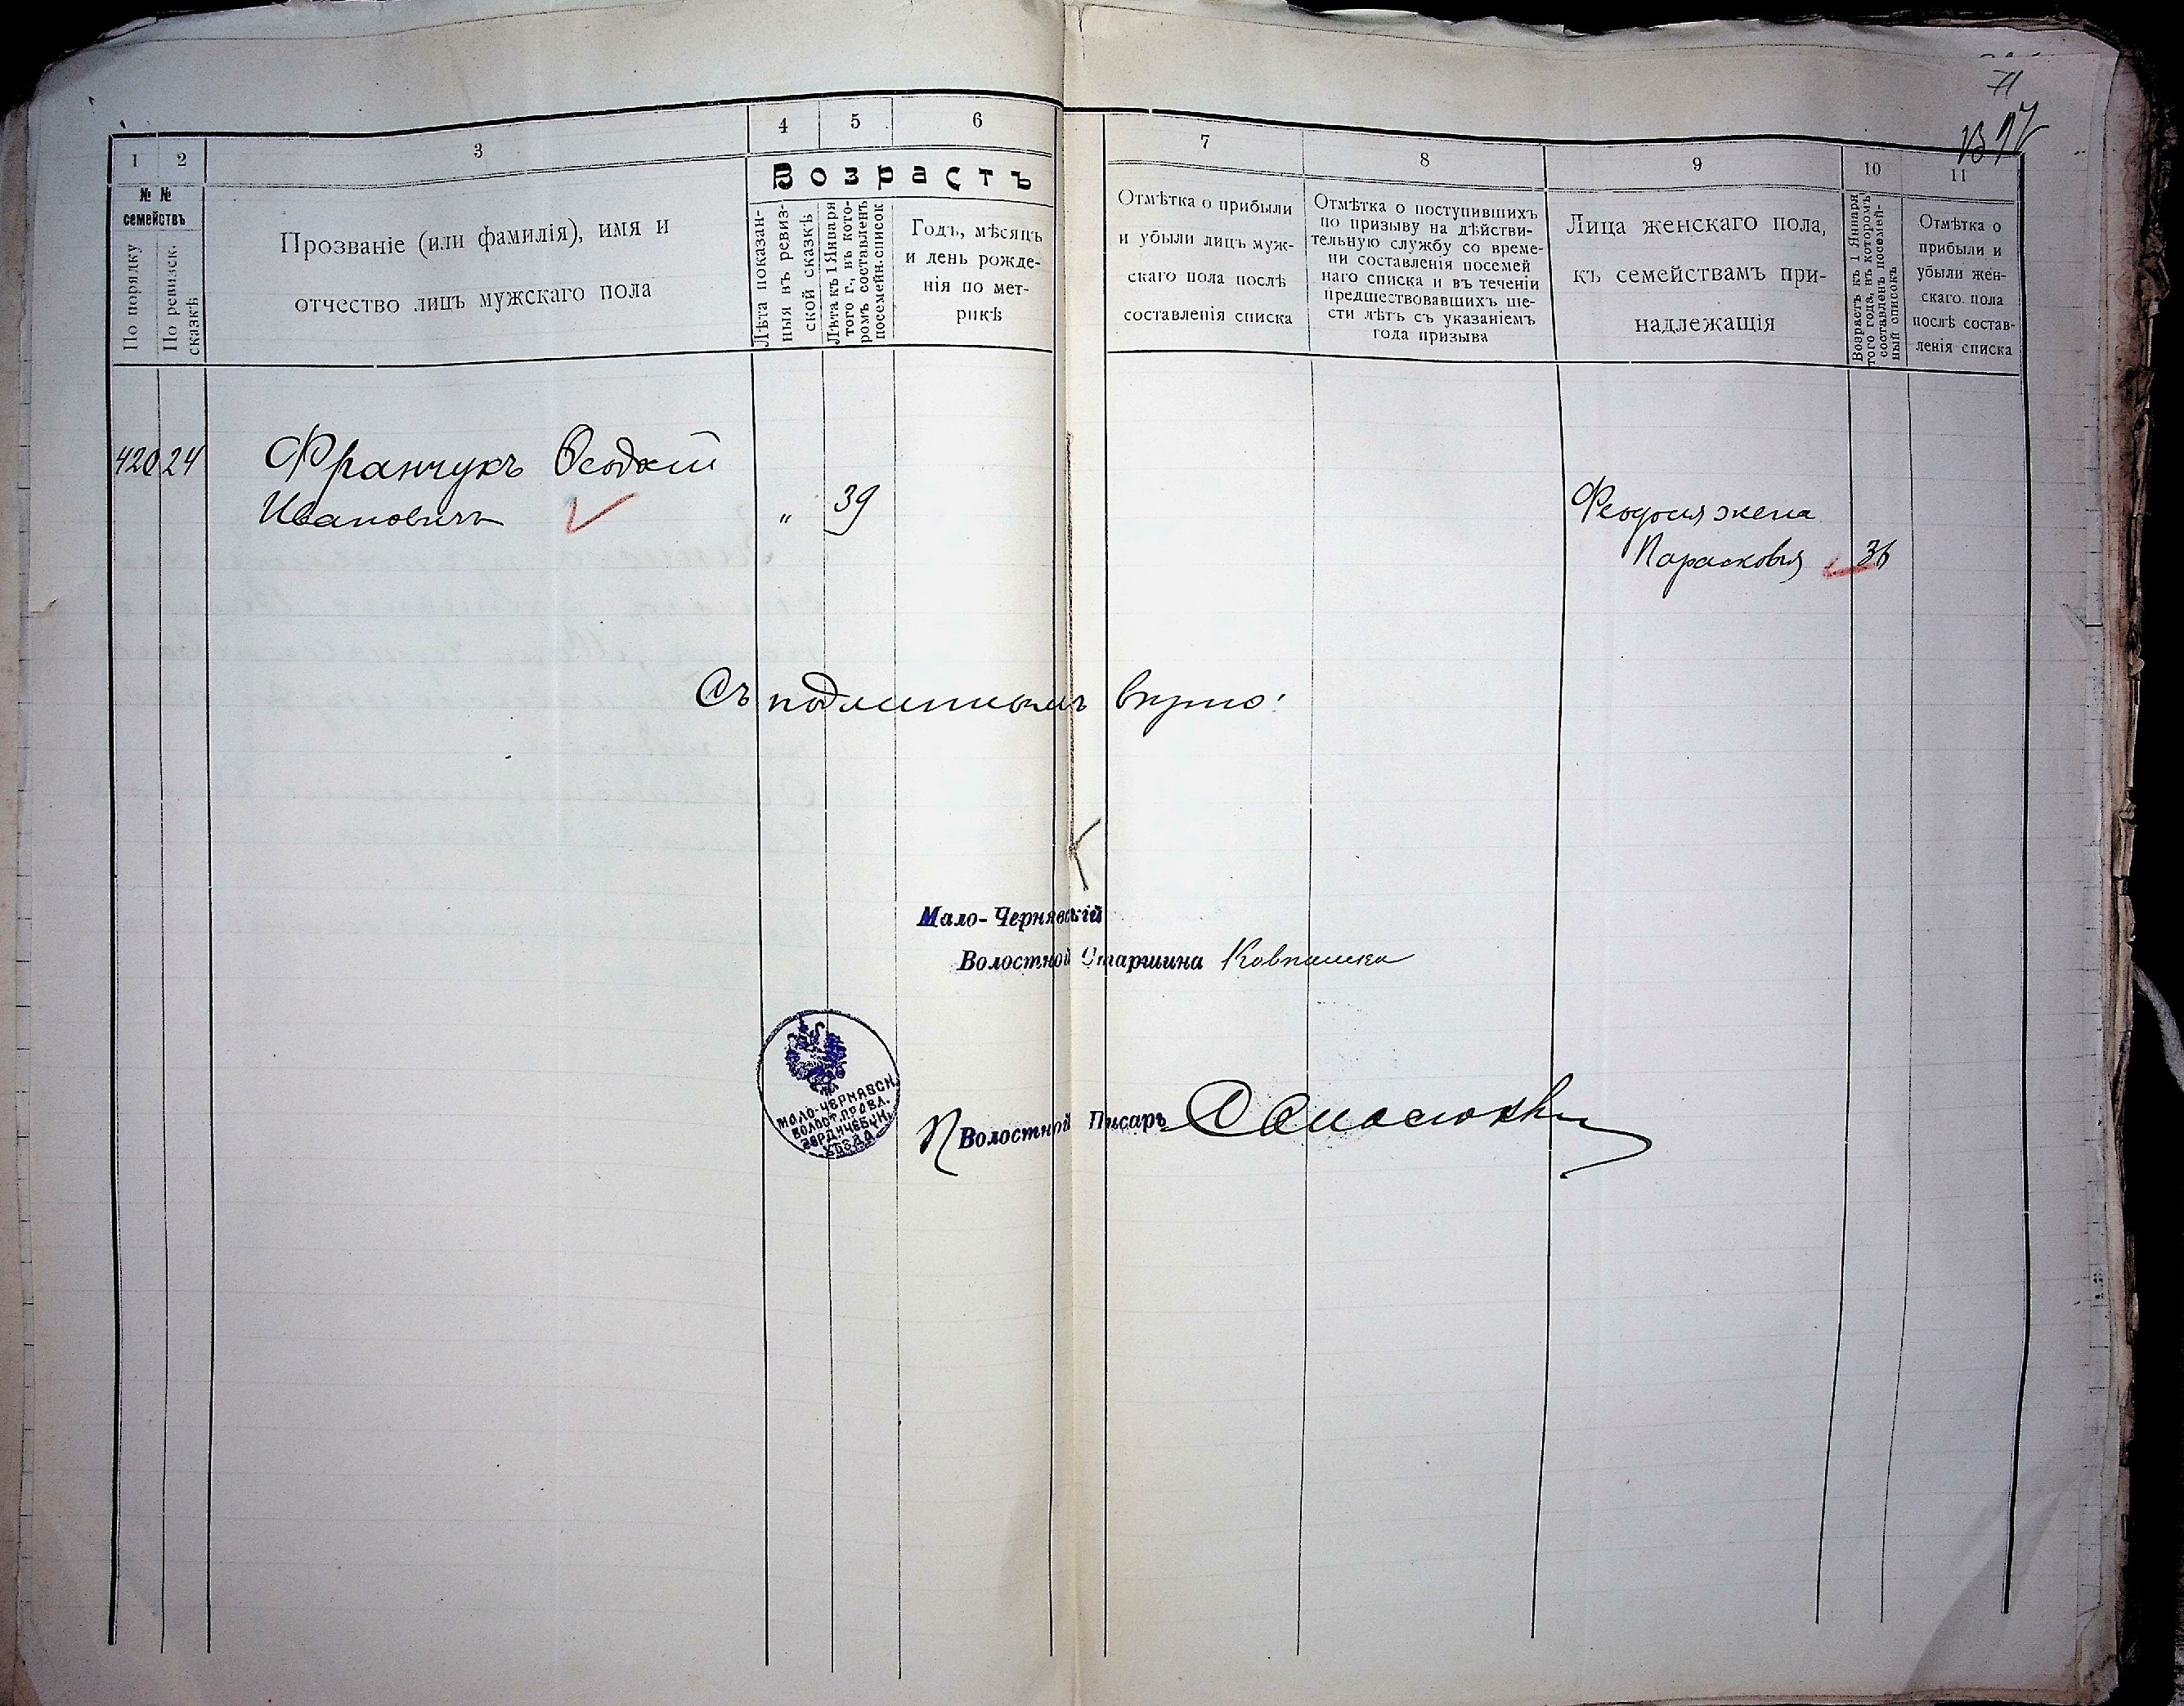 71
1 2 3 4 5 6
№ № семействъ
По порядку
По ревизск. сказкѣ
Прозваніе (или фамилія), имя и
отчество лицъ мужскаго пола
Возрастъ
Лѣта показан-
ныя въ ревиз-
ской сказкѣ
Лѣта къ 1 Января
того г., въ кото-
ромъ составленъ
посемейн. список
Годъ, мѣсяцъ
и день рожде-
нія по мет-
рикѣ
7 8 9 10 11
Отмѣтка о прибыли
и убыли лицъ муж-
скаго пола послѣ
составленія списка
Отмѣтка о поступившихъ
по призыву на дѣйстви-
тельную службу со време-
ни составленія посемей
наго списка и въ теченіи
предшествовавшихъ ше-
сти лѣтъ съ указаніемъ
года призыва
Лица женскаго пола,
къ семействамъ при-
надлежащія
Возрастъ къ 1 Января
того года, въ которомъ
составленъ посемей-
ный списокъ
Отмѣтка о
прибыли и
убыли жен-
скаго пола
послѣ состав-
ленія списка
420 24 Франчукъ Ѳеодосій
Ивановичъ " 39
Феодосія жена
Парасковья 36
Съ подлиннымъ вѣрно:
Мало-Чернявскій
Волостной Старшина
МАЛО-ЧЕРНЯВСК.
ВОЛОСТ. ПРАВЛ.
БЕРДИЧЕВСК.
УѢЗДА
Волостной Писарь